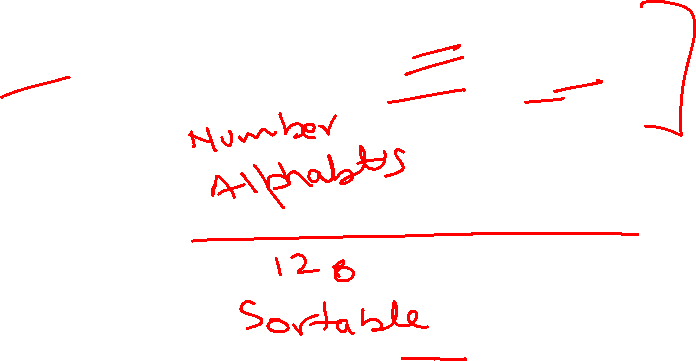 Number
Alphabets
128
Sortable